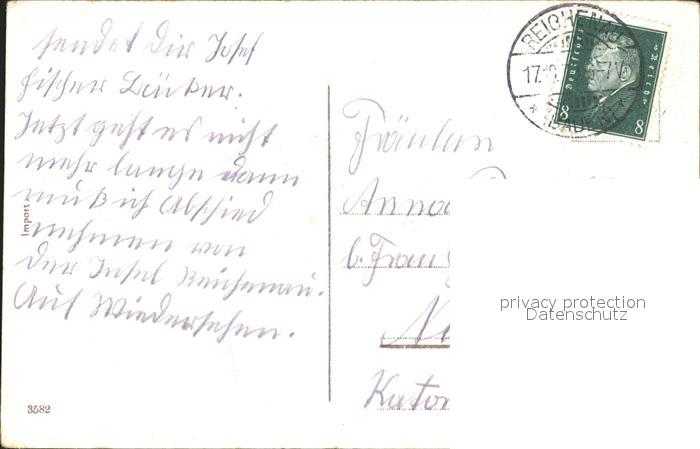 sendet Dir Josef
Fischer Bäcker.
Jetzt geht es nicht
mehr lange dann
muß ich Abschied
nehmen von
der Insel Reichenau.
Auf Wiedersehen.
Import
3582
REICHENAU
17.
5-7V
* (BADEN) *
Deutsches Reich
8
8
Fräulein
Anna
b. Frau
Kator
privacy protection
Datenschutz